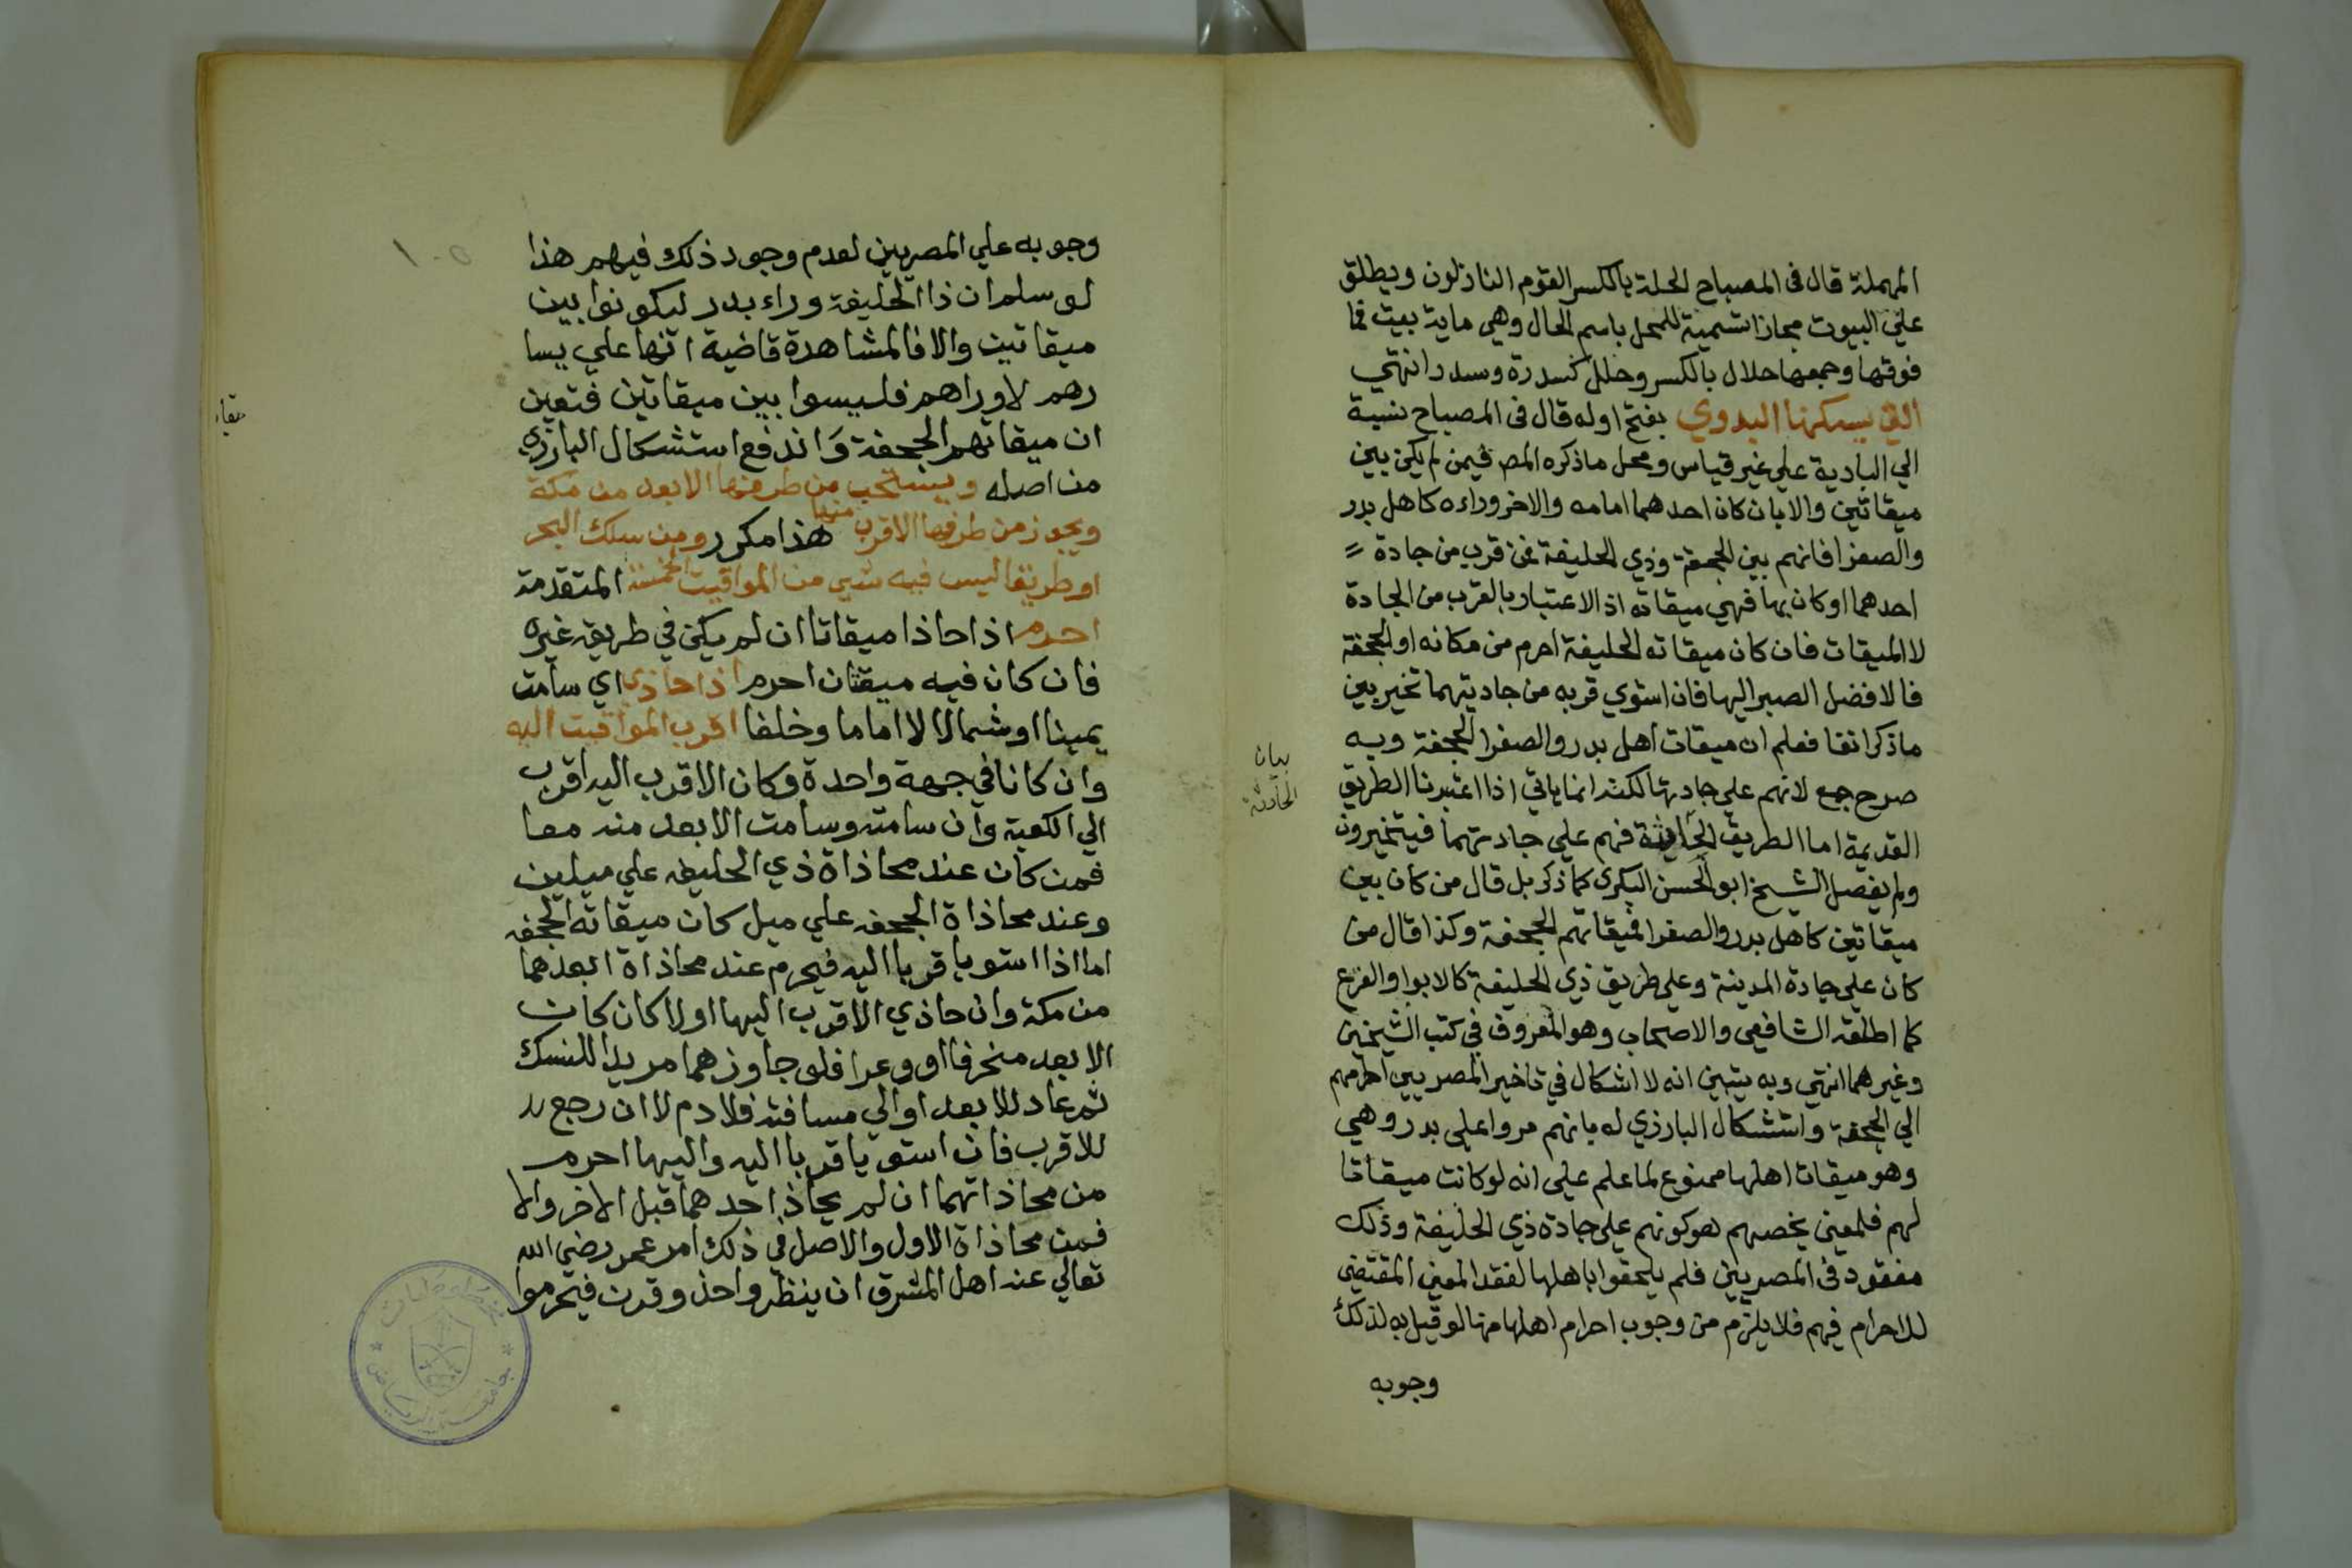 المهملة قال فى المصباح الحلة بالكسر القوم النازلون ويطلق
على البيوت مجازا تسمية للمحل باسم الحال وهي ماية بيت فما
فوقها وجمعها حلال بالكسر وحلل كسدرة وسدر انتهي
التي يسكنها البدوي بفتح اوله قال فى المصباح نسبة
الي البادية علي غير قياس ومحل ما ذكره المص فيمن لم يكن بين
ميقاتين والا بان كان احدهما امامه والاخر وراءه كاهل بدر
والصفرا فانهم بين الجحفة وذي الحليفة فمن قرب من جادة
احدهما او كان بها فهي ميقاته اذ الاعتبار بالقرب من الجادة
لا الميقات فان كان ميقاته الحليفة احرم من مكانه او الجحفة
فالافضل الصبر اليها فان استوي قربه من جاديتهما تخير بين
ما ذكر انفا فعلم ان ميقات اهل بدر والصفرا الجحفة وبه
صرح جمع لانهم علي جادتها لكنه انما ياتي اذا اعتبرنا الطريق
القديمة اما الطريق الحادثة فهم علي جادتهما فيتخيرون
ولم يفصل الشيخ ابو الحسن البكرى كما ذكر بل قال من كان بين
ميقاتين كاهل بدر والصفرا فميقاتهم الجحفة وكذا قال من
كان علي جادة المدينة وعلي طريق ذي الحليفة كالابوا والفرع
كما اطلقه الشافعي والاصحاب وهو المعروف في كتب الشيخين
وغيرهما انتهي وبه يتبين انه لا اشكال في تاخير المصريين احرامهم
الي الجحفة واستشكال البارزي له بانهم مروا علي بدر وهي
وهو ميقات اهلها ممنوع لما علم علي انه لو كانت ميقاتا
لهم فلمعني يخصهم هو كونهم علي جادة ذي الحليفة وذلك
مفقود فى المصريين فلم يلحقوا باهلها لفقد المعني المقتضي
للاحرام فيهم فلا يلزم من وجوب احرام اهلها منها لو قيل به لذلك
وجوبه
بيان
الحادثة
وجوبه علي المصريين لعدم وجود ذلك فيهم هذا
لو سلم ان ذا الحليفة وراء بدر ليكونوا بين
ميقاتين والا فالمشاهدة قاضية انها علي يسا
رهم لا وراهم فليسوا بين ميقاتين فتعين
ان ميقاتهم الجحفة واندفع استشكال البارزي
من اصله ويستحب من طرفها الابعد من مكة
ويجوز من طرفها الاقرب منها هذا مكرر ومن سلك البحر
او طريقا ليس فيه شي من المواقيت الخمسة المتقدمة
احرم اذا حاذا ميقاتا ان لم يكن في طريقه غيره
فان كان فيه ميقتان احرم اذا حاذي اي سامت
يمينا او شمالا لا اماما وخلفا اقرب المواقيت اليه
وان كانا في جهة واحدة وكان الاقرب اليه اقرب
الي الكعبة وان سامته وسامت الابعد منه معا
فمن كان عند محاذاة ذي الحليفه علي ميلين
وعند محاذاة الجحفه علي ميل كان ميقاته الجحفه
اما اذا استويا قربا اليه فيحرم عند محاذاة ابعدهما
من مكة وان حاذي الاقرب اليها اولا كان كان
الابعد منحرفا او وعرا فلو جاوزهما مريدا للنسك
ثم عاد للابعد او الي مسافته فلا دم لا ان رجع
للاقرب فان استويا قربا اليه واليها احرم
من محاذاتهما ان لم يحاذ احدهما قبل الاخر والا
فمن محاذاة الاول والاصل في ذلك امر عمر رضي الله
تعالي عنه اهل المشرق ان ينظروا حذو قرن فيحرموا
١٠٥